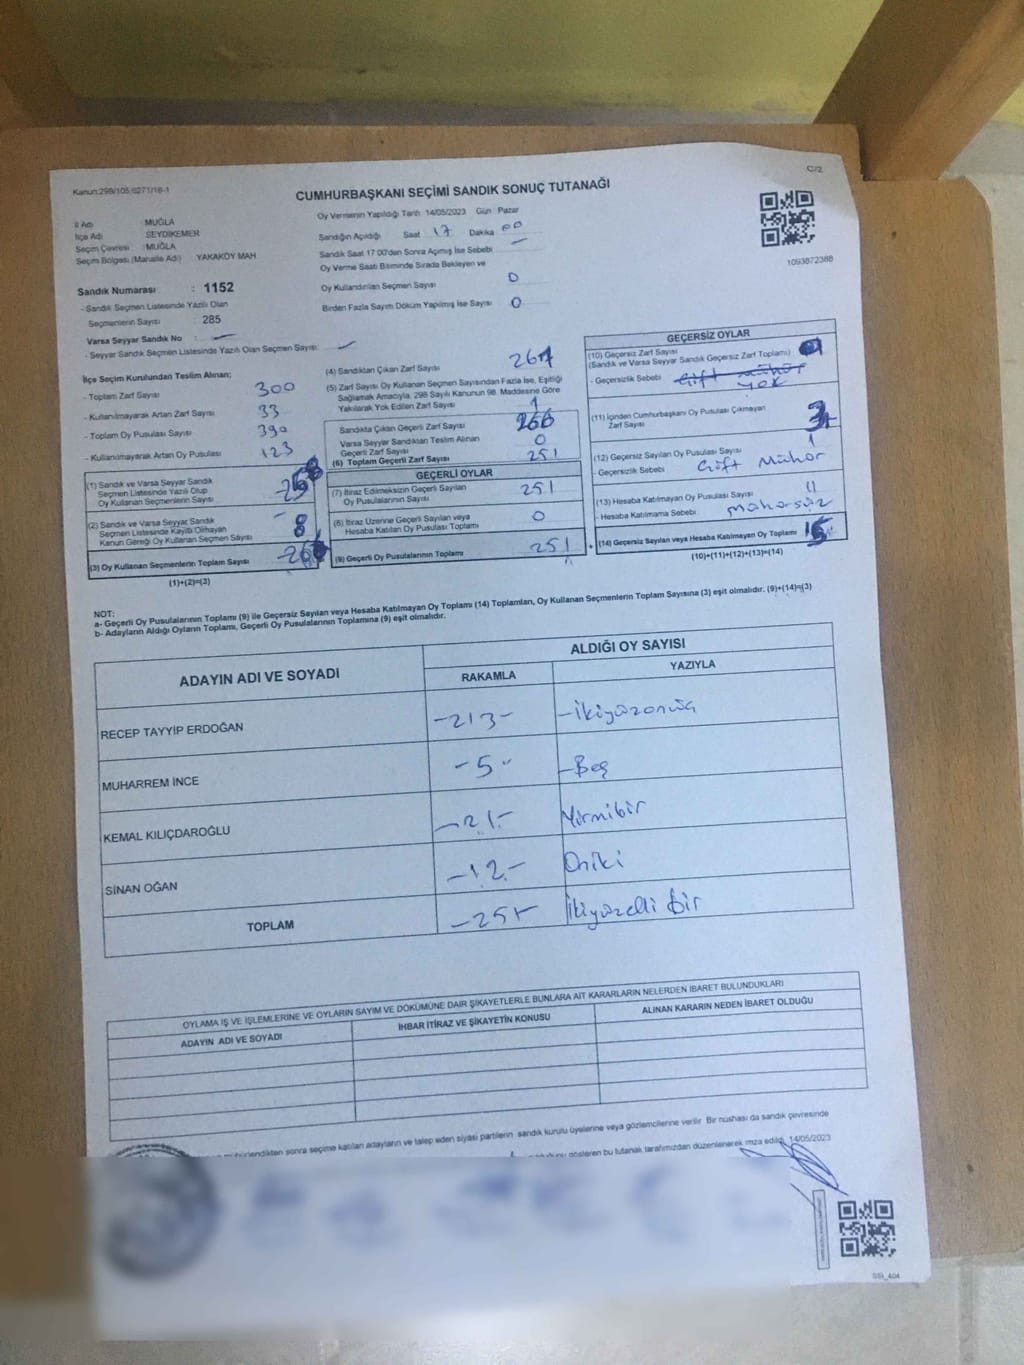 Kanun:298/105;6271/16-1
C/2
CUMHURBAŞKANI SEÇİMİ SANDIK SONUÇ TUTANAĞI
İl Adı : MUĞLA
İlçe Adı : SEYDİKEMER
Seçim Çevresi : MUĞLA
Seçim Bölgesi (Mahalle Adı) : YAKAKÖY MAH
Sandık Numarası : 1152
- Sandık Seçmen Listesinde Yazılı Olan
Seçmenlerin Sayısı : 285
Varsa Seyyar Sandık No : -
- Seyyar Sandık Seçmen Listesinde Yazılı Olan Seçmen Sayısı: -
Oy Vermenin Yapıldığı Tarih 14/05/2023 Gün Pazar
Sandığın Açıldığı Saat 17 Dakika 00
Sandık Saat 17:00'den Sonra Açılmış İse Sebebi -
Oy Verme Saati Bitiminde Sırada Bekleyen ve
Oy Kullandırılan Seçmen Sayısı 0
Birden Fazla Sayım Döküm Yapılmış İse Sayısı 0
1093872388
İlçe Seçim Kurulundan Teslim Alınan;
- Toplam Zarf Sayısı 300
- Kullanılmayarak Artan Zarf Sayısı 33
- Toplam Oy Pusulası Sayısı 390
- Kullanılmayarak Artan Oy Pusulası 123
(1) Sandık ve Varsa Seyyar Sandık
Seçmen Listesinde Yazılı Olup
Oy Kullanan Seçmenlerin Sayısı
(2) Sandık ve Varsa Seyyar Sandık
Seçmen Listesinde Kayıtlı Olmayan
Kanun Gereği Oy Kullanan Seçmen Sayısı 8
(3) Oy Kullanan Seçmenlerin Toplam Sayısı
(1)+(2)=(3)
(4) Sandıktan Çıkan Zarf Sayısı 267
(5) Zarf Sayısı Oy Kullanan Seçmen Sayısından Fazla İse, Eşitliği
Sağlamak Amacıyla, 298 Sayılı Kanunun 98. Maddesine Göre
Yakılarak Yok Edilen Zarf Sayısı 1
Sandıkta Çıkan Geçerli Zarf Sayısı 266
Varsa Seyyar Sandıktan Teslim Alınan
Geçerli Zarf Sayısı 0
(6) Toplam Geçerli Zarf Sayısı 251
GEÇERLİ OYLAR
(7) İtiraz Edilmeksizin Geçerli Sayılan
Oy Pusulalarının Sayısı 251
(8) İtiraz Üzerine Geçerli Sayılan veya
Hesaba Katılan Oy Pusulası Toplamı 0
(9) Geçerli Oy Pusulalarının Toplamı 251
GEÇERSİZ OYLAR
(10) Geçersiz Zarf Sayısı
(Sandık ve Varsa Seyyar Sandık Geçersiz Zarf Toplamı)
- Geçersizlik Sebebi Çift mühür
YOK
(11) İçinden Cumhurbaşkanı Oy Pusulası Çıkmayan
Zarf Sayısı
(12) Geçersiz Sayılan Oy Pusulası Sayısı 1
- Geçersizlik Sebebi Çift Mühür
(13) Hesaba Katılmayan Oy Pusulası Sayısı 11
- Hesaba Katılmama Sebebi Mühürsüz
(14) Geçersiz Sayılan veya Hesaba Katılmayan Oy Toplamı 15
(10)+(11)+(12)+(13)=(14)
NOT:
a- Geçerli Oy Pusulalarının Toplamı (9) ile Geçersiz Sayılan veya Hesaba Katılmayan Oy Toplamı (14) Toplamları, Oy Kullanan Seçmenlerin Toplam Sayısına (3) eşit olmalıdır. (9)+(14)=(3)
b- Adayların Aldığı Oyların Toplamı, Geçerli Oy Pusulalarının Toplamına (9) eşit olmalıdır.
ADAYIN ADI VE SOYADI
ALDIĞI OY SAYISI
RAKAMLA YAZIYLA
RECEP TAYYİP ERDOĞAN -213- -İkiyüzonüç
MUHARREM İNCE -5- -Beş
KEMAL KILIÇDAROĞLU -21- Yirmibir
SİNAN OĞAN -12- Oniki
TOPLAM -251- İkiyüzelli bir
OYLAMA İŞ VE İŞLEMLERİNE VE OYLARIN SAYIM VE DÖKÜMÜNE DAİR ŞİKAYETLERLE BUNLARA AİT KARARLARIN NELERDEN İBARET BULUNDUKLARI
ADAYIN ADI VE SOYADI İHBAR İTİRAZ VE ŞİKAYETİN KONUSU ALINAN KARARIN NEDEN İBARET OLDUĞU
mühürlendikten sonra seçime katılan adayların ve talep eden siyasi partilerin sandık kurulu üyelerine veya gözlemcilerine verilir. Bir nüshası da sandık çevresinde
gösteren bu tutanak tarafımızdan düzenlenerek imza edildi. 14/05/2023
SSI_404